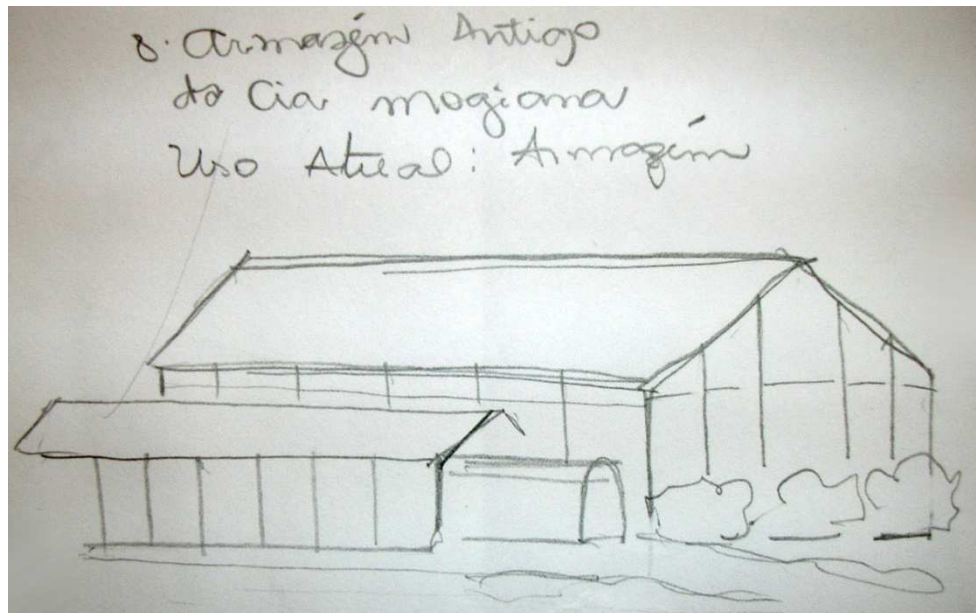 8. Armazém Antigo
da Cia mogiana
Uso Atual: Armazém